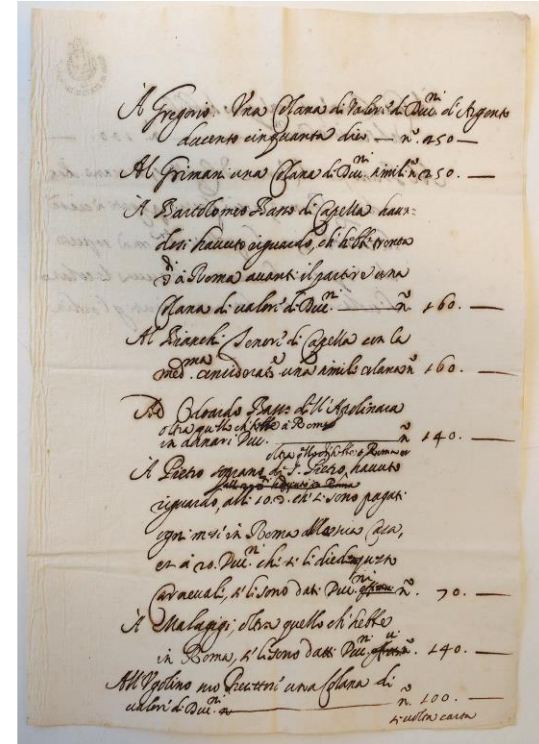 À Gregorio. Una Colana di valor di Duc.ni d'Argento
ducento cinquanta dico — n.º 250 —
Al Grimani una Colana di Duc.ni simili n.º 250. —
À Bartolomeo Basso di Capella haven-
dosi havuto riguardo, ch'hebbe trenta
à Roma avanti il partire una
Colana di valor di Duc.ni n.º 160. —
Al Bianchi Tenor di Capella con la
med.ma consideratᵉ una simile colana n.º 160. —
Ad Odoardo Basso dell'Apolinara
oltra quello ch'hebbe à Roma
in danari Duc. n.º 140. —
oltra q.llo ch'hebbe à Roma
À Pietro soprano di S. Pietro, havuto
riguardo, alli 10. ch'si sono pagati
ogni mese in Roma alla sua Casa,
et à 20. Duc.ni che si li diedero questo
Carnevali, s'li sono dati Duc.ni n.º 70. —
À Malagigi, oltra quello ch'hebbe
in Roma, s'li sono datti Duc.ni n.º 140. —
All'Ugolino suo Precettor una Colana di
valor di Duc.ni n.º 100. —
si volta carta